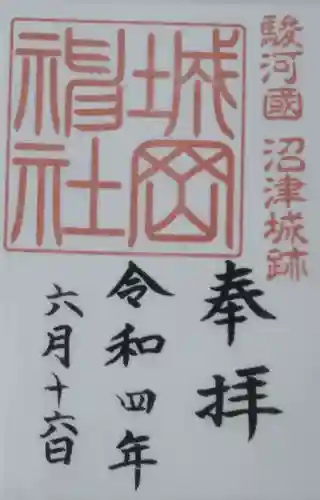 駿河國 沼津城跡
城岡神社
奉拝
令和四年
六月十六日